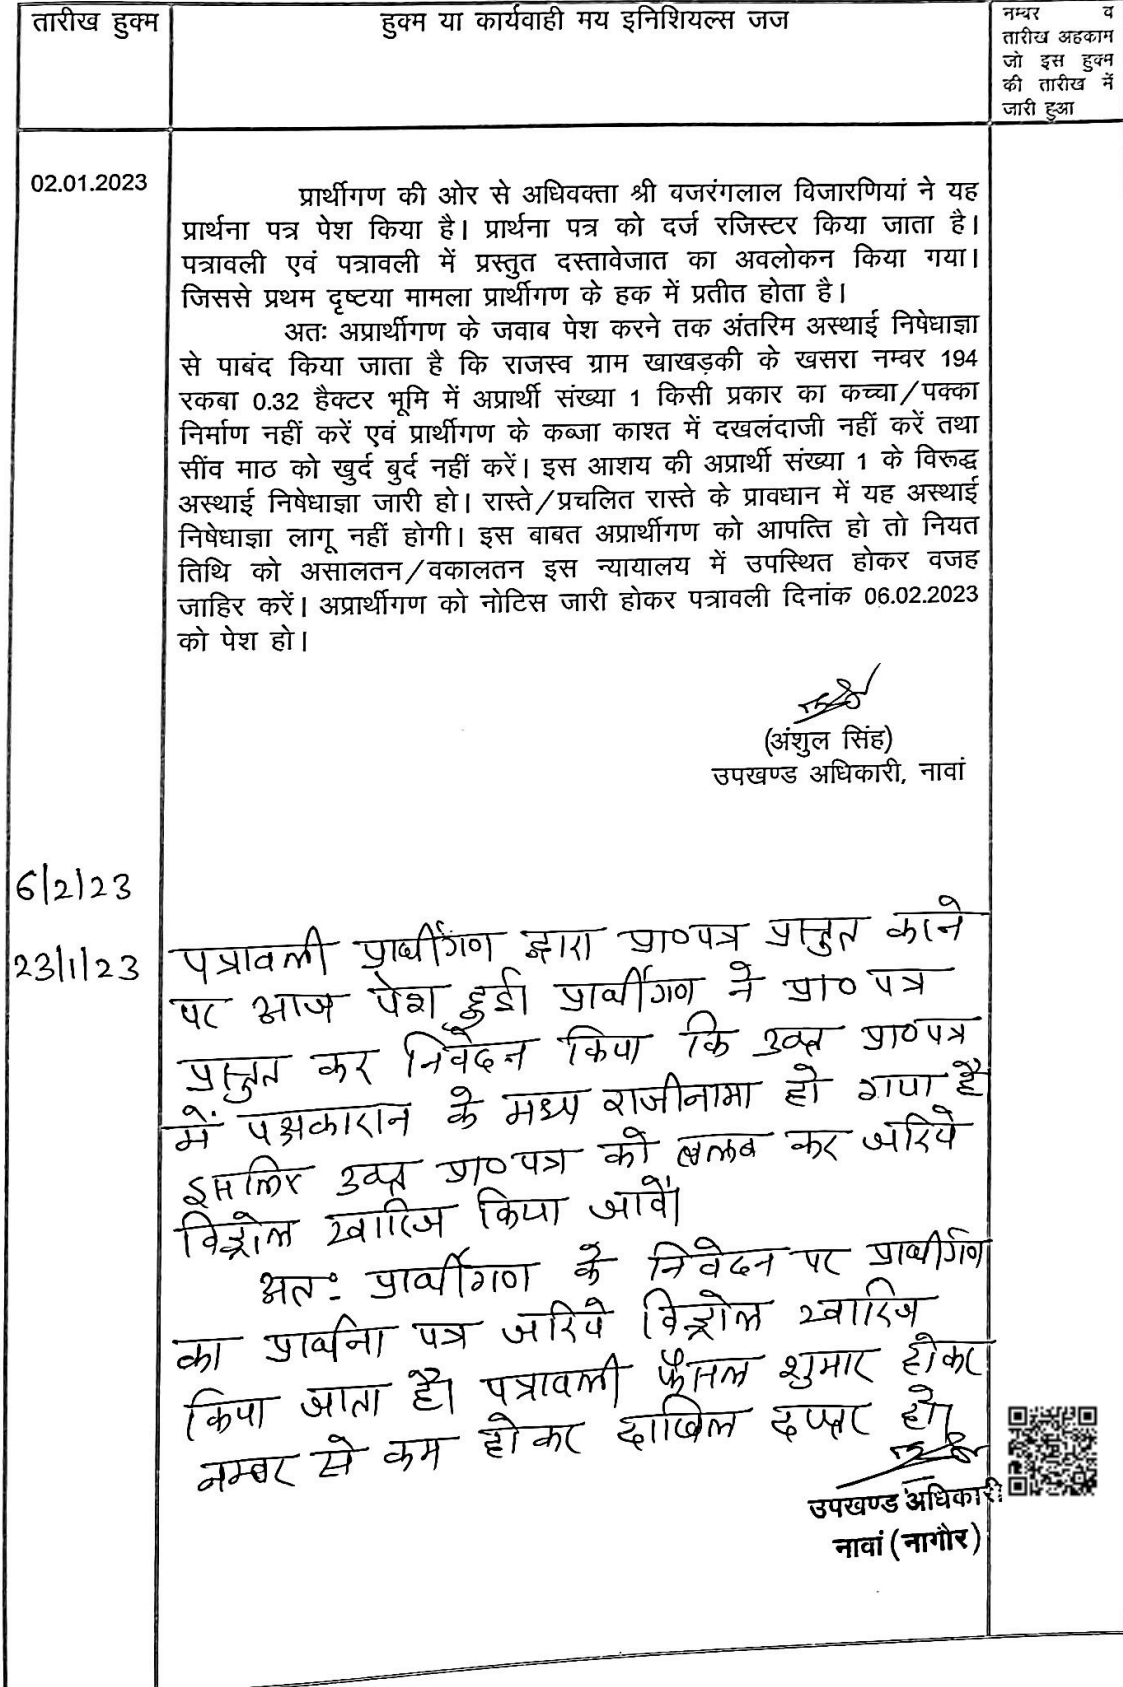 तारीख हुक्म
हुक्म या कार्यवाही मय इनिशियल्स जज
नम्बर व
तारीख अहकाम
जो इस हुक्म
की तारीख में
जारी हुआ
02.01.2023
प्रार्थीगण की ओर से अधिवक्ता श्री वजरंगलाल विजारणियां ने यह
प्रार्थना पत्र पेश किया है। प्रार्थना पत्र को दर्ज रजिस्टर किया जाता है।
पत्रावली एवं पत्रावली में प्रस्तुत दस्तावेजात का अवलोकन किया गया।
जिससे प्रथम दृष्टया मामला प्रार्थीगण के हक में प्रतीत होता है।
अतः अप्रार्थीगण के जवाब पेश करने तक अंतरिम अस्थाई निषेधाज्ञा
से पाबंद किया जाता है कि राजस्व ग्राम खाखड़की के खसरा नम्वर 194
रकबा 0.32 हैक्टर भूमि में अप्रार्थी संख्या 1 किसी प्रकार का कच्चा/पक्का
निर्माण नहीं करें एवं प्रार्थीगण के कब्जा काश्त में दखलंदाजी नहीं करें तथा
सींव माठ को खुर्द बुर्द नहीं करें। इस आशय की अप्रार्थी संख्या 1 के विरूद्ध
अस्थाई निषेधाज्ञा जारी हो। रास्ते/प्रचलित रास्ते के प्रावधान में यह अस्थाई
निषेधाज्ञा लागू नहीं होगी। इस बाबत अप्रार्थीगण को आपत्ति हो तो नियत
तिथि को असालतन/वकालतन इस न्यायालय में उपस्थित होकर वजह
जाहिर करें। अप्रार्थीगण को नोटिस जारी होकर पत्रावली दिनांक 06.02.2023
को पेश हो।
(अंशुल सिंह)
उपखण्ड अधिकारी, नावां
6/2/23
23/1/23
पत्रावली प्रार्थीगण द्वारा प्रा०पत्र प्रस्तुत करने
पर आज पेश हुई। प्रार्थीगण ने प्रा० पत्र
प्रस्तुत कर निवेदन किया कि उक्त प्रा०पत्र
में पक्षकारान के मध्य राजीनामा हो गया है
इसलिए उक्त प्रा०पत्र को तलब कर जरिये
विड्रोल खारिज किया जावें।
अतः प्रार्थीगण के निवेदन पर प्रार्थीगण
का प्रार्थना पत्र जरिये विड्रोल खारिज
किया जाता है। पत्रावली फैसल शुमार होकर
नम्बर से कम होकर दाखिल दफ्तर हो।
उपखण्ड अधिकारी
नावां (नागौर)